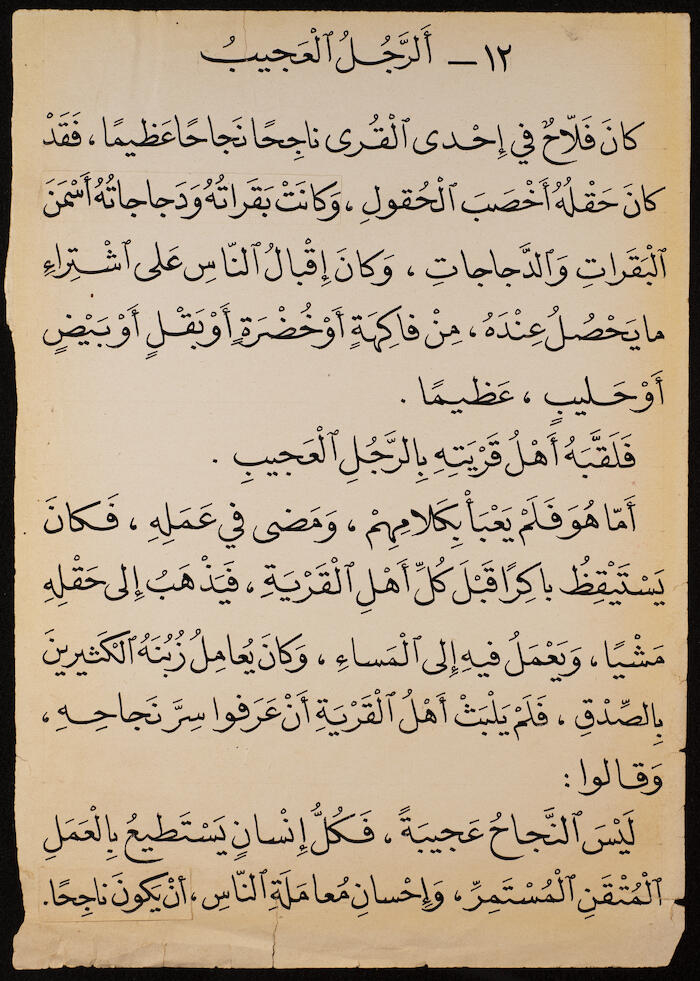 ١٢ - أَلرَّجُلُ ٱلْعَجيبُ
كانَ فَلّاحٌ في إِحْدى ٱلْقُرى ناجِحًا نَجاحًا عَظيمًا، فَقَدْ
كانَ حَقْلُهُ أَخْصَبَ ٱلْحُقولِ، وَكانَتْ بَقَراتُهُ وَدَجاجاتُهُ أَسْمَنَ
ٱلْبَقَراتِ وَٱلدَّجاجاتِ، وَكانَ إِقْبالُ ٱلنّاسِ عَلى ٱشْتِراءِ
ما يَحْصُلُ عِنْدَهُ، مِنْ فاكِهَةٍ أَوْ خُضْرَةٍ أَوْ بَقْلٍ أَوْ بَيْضٍ
أَوْ حَليبٍ، عَظيمًا.
فَلَقَّبَهُ أَهْلُ قَرْيَتِهِ بِالرَّجُلِ ٱلْعَجيبِ.
أَمّا هُوَ فَلَمْ يَعْبَأْ بِكَلامِهِمْ، وَمَضى في عَمَلِهِ، فَكانَ
يَسْتَيْقِظُ باكِرًا قَبْلَ كُلِّ أَهْلِ ٱلْقَرْيَةِ، فَيَذْهَبُ إِلى حَقْلِهِ
مَشْيًا، وَيَعْمَلُ فيهِ إِلى ٱلْمَساءِ، وَكانَ يُعامِلُ زُبُنَهُ ٱلْكَثيرينَ
بِالصِّدْقِ، فَلَمْ يَلْبَثْ أَهْلُ ٱلْقَرْيَةِ أَنْ عَرَفوا سِرَّ نَجاحِهِ،
وَقالوا:
لَيْسَ ٱلنَّجاحُ عَجيبَةً، فَكُلُّ إِنْسانٍ يَسْتَطيعُ بِالْعَمَلِ
ٱلْمُتْقَنِ ٱلْمُسْتَمِرِّ، وَإِحْسانِ مُعامَلَةِ ٱلنّاسِ، أَنْ يَكونَ ناجِحًا.